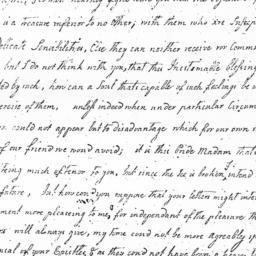 is a treasure inferior to no other; with them who are Suscep
Delicate Sensibilities, Else they can neither receive nor Comm
but I do not think with you, that this Inestimable Blessing
ted by such, how can a Soul that is capable of such feelings be
exercise of them, unless indeed when under particular Circum
we could not appear but to disadvantage which for our own
of our friend we woud avoid; it is this Pride Madam that
iting much oftener to you. but since the Ice is broken, I intend
future, but how coud you suppose that your letters might inter
ment more pleasing to me, for independent of the pleasure th
rs will always give, my time could not be more agreeably
usal of your Epistles & as they coud not have been a